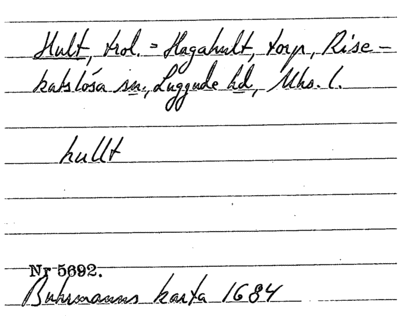 Hult, trol. = Hagahult, torp, Rise-
katslösa sn., Luggude hd, Mhs. l.
hullt
Nr 5692.
Buhrmanns karta 1684